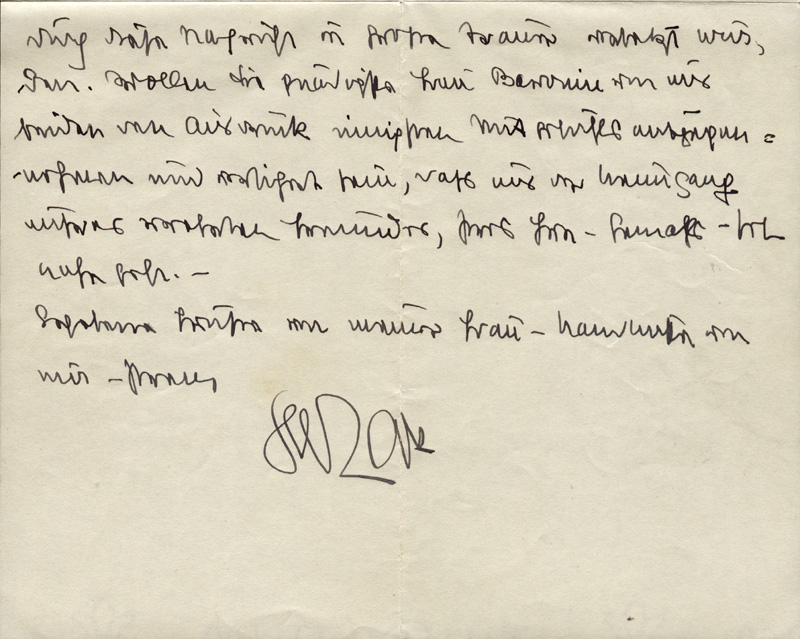 durch diese Nachricht in große Trauer versetzt wur,
den. Wollen Sie gnädigste Frau Baronin von uns
beiden den Ausdruck innigsten Mitgefühls entgegen =
nehmen und versichert sein, daß uns der Heimgang
unseres verehrten Freundes, sehr - sehr
nahe geht. –
Ergebene Grüße von meiner Frau – Handküsse von
mir – Ihrem